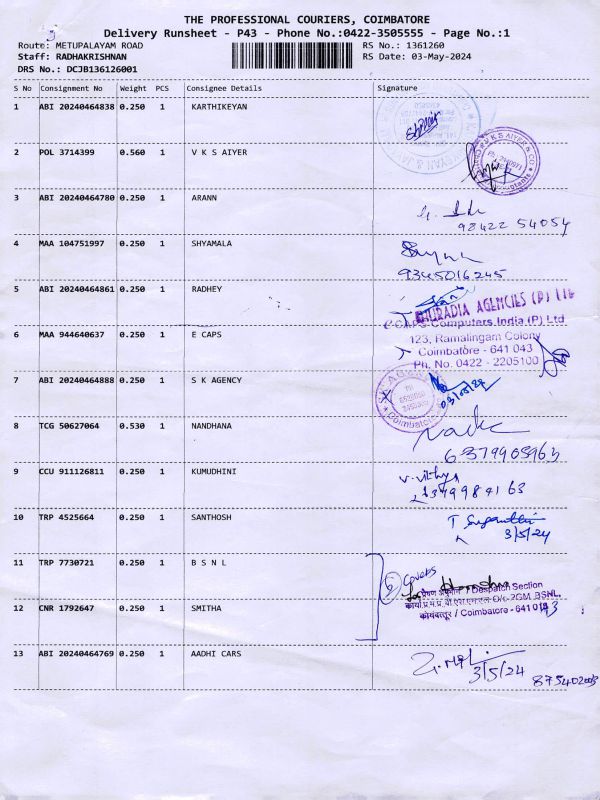 THE PROFESSIONAL COURIERS, COIMBATORE
Delivery Runsheet - P43 - Phone No.:0422-3505555 - Page No.:1
Route: METUPALAYAM ROAD RS No.: 1361260
Staff: RADHAKRISHNAN RS Date: 03-May-2024
DRS No.: DCJB136126001
S No Consignment No Weight PCS Consignee Details Signature
1 ABI 20240464838 0.250 1 KARTHIKEYAN
2 POL 3714399 0.560 1 V K S AIYER
V K S AIYER & CO
3 ABI 20240464780 0.250 1 ARANN
98422 54054
4 MAA 104751997 0.250 1 SHYAMALA
9345016245
5 ABI 20240464861 0.250 1 RADHEY
AGENCIES (P) LTD
6 MAA 944640637 0.250 1 E CAPS
Computers India (P) Ltd
123, Ramalingam Colony
Coimbatore - 641 043
Ph. No. 0422 - 2205100
7 ABI 20240464888 0.250 1 S K AGENCY
03/05/24
8 TCG 50627064 0.530 1 NANDHANA
9 CCU 911126811 0.250 1 KUMUDHINI
10 TRP 4525664 0.250 1 SANTHOSH
3/5/24
11 TRP 7730721 0.250 1 B S N L
2 Covers
Despatch Section
12 CNR 1792647 0.250 1 SMITHA
BSNL,
कोयंबत्तूर / Coimbatore - 641 043
13 ABI 20240464769 0.250 1 AADHI CARS
3/5/24